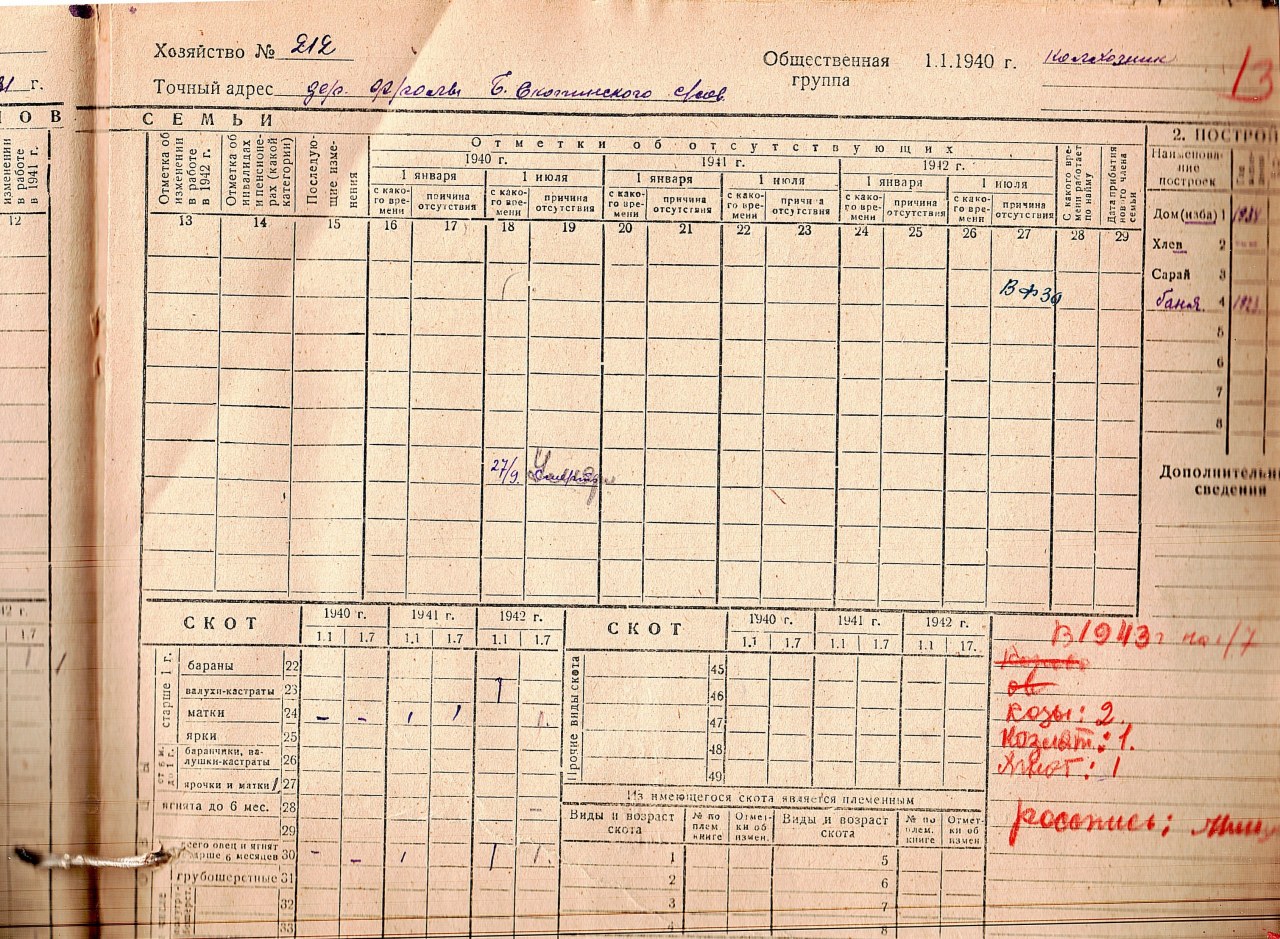 Хозяйство № 212
Общественная группа 1.1.1940 г. колхозник
13
31 г.
Точный адрес дер. Б. Скопинского с/сов.
НОВ СЕМЬИ
2. ПОСТРОЙ
изменении в работе в 1941 г.
Отметка об изменении в работе в 1942 г.
Отметка об инвалидах и пенсионерах (какой категории)
Последующие изменения
Отметки об отсутствующих
1940 г. 1941 г. 1942 г.
1 января 1 июля 1 января 1 июля 1 января 1 июля
с какого времени причина отсутствия с какого времени причина отсутствия с какого времени причина отсутствия с какого времени причина отсутствия с какого времени причина отсутствия с какого времени причина отсутствия
С какого времени работает по найму
Дата прибытия нового члена семьи
Наименование построек
12 13 14 15 16 17 18 19 20 21 22 23 24 25 26 27 28 29
Дом (изба) 1
Хлев 2
Сарай 3
В ФЗО
баня 4
5
6
7
8
27/9
Дополнительн
сведения
42 г.
1.7
СКОТ 1940 г. 1941 г. 1942 г.
1.1 1.7 1.1 1.7 1.1 1.7
СКОТ 1940 г. 1941 г. 1942 г.
1.1 1.7 1.1 1.7 1.1 17.
В 1943 г на 1/7
старше 1 г.
бараны 22
валухи-кастраты 23
матки 24
ярки 25
от 6 м. до 1 г.
баранчики, валушки-кастраты 26
ярочки и матки 27
ягнята до 6 мес. 28
29
всего овец и ягнят старше 6 месяцев 30
грубошерстные 31
32
33
Прочие виды скота
45
46
47
48
49
козы: 2.
козлят: 1.
Ягнят: 1
роспись:
Из имеющегося скота является племенным
Виды и возраст скота № по плем. книге Отметки об измен. Виды и возраст скота № по плем. книге Отметки об измен
1 5
2 6
3 7
4 8